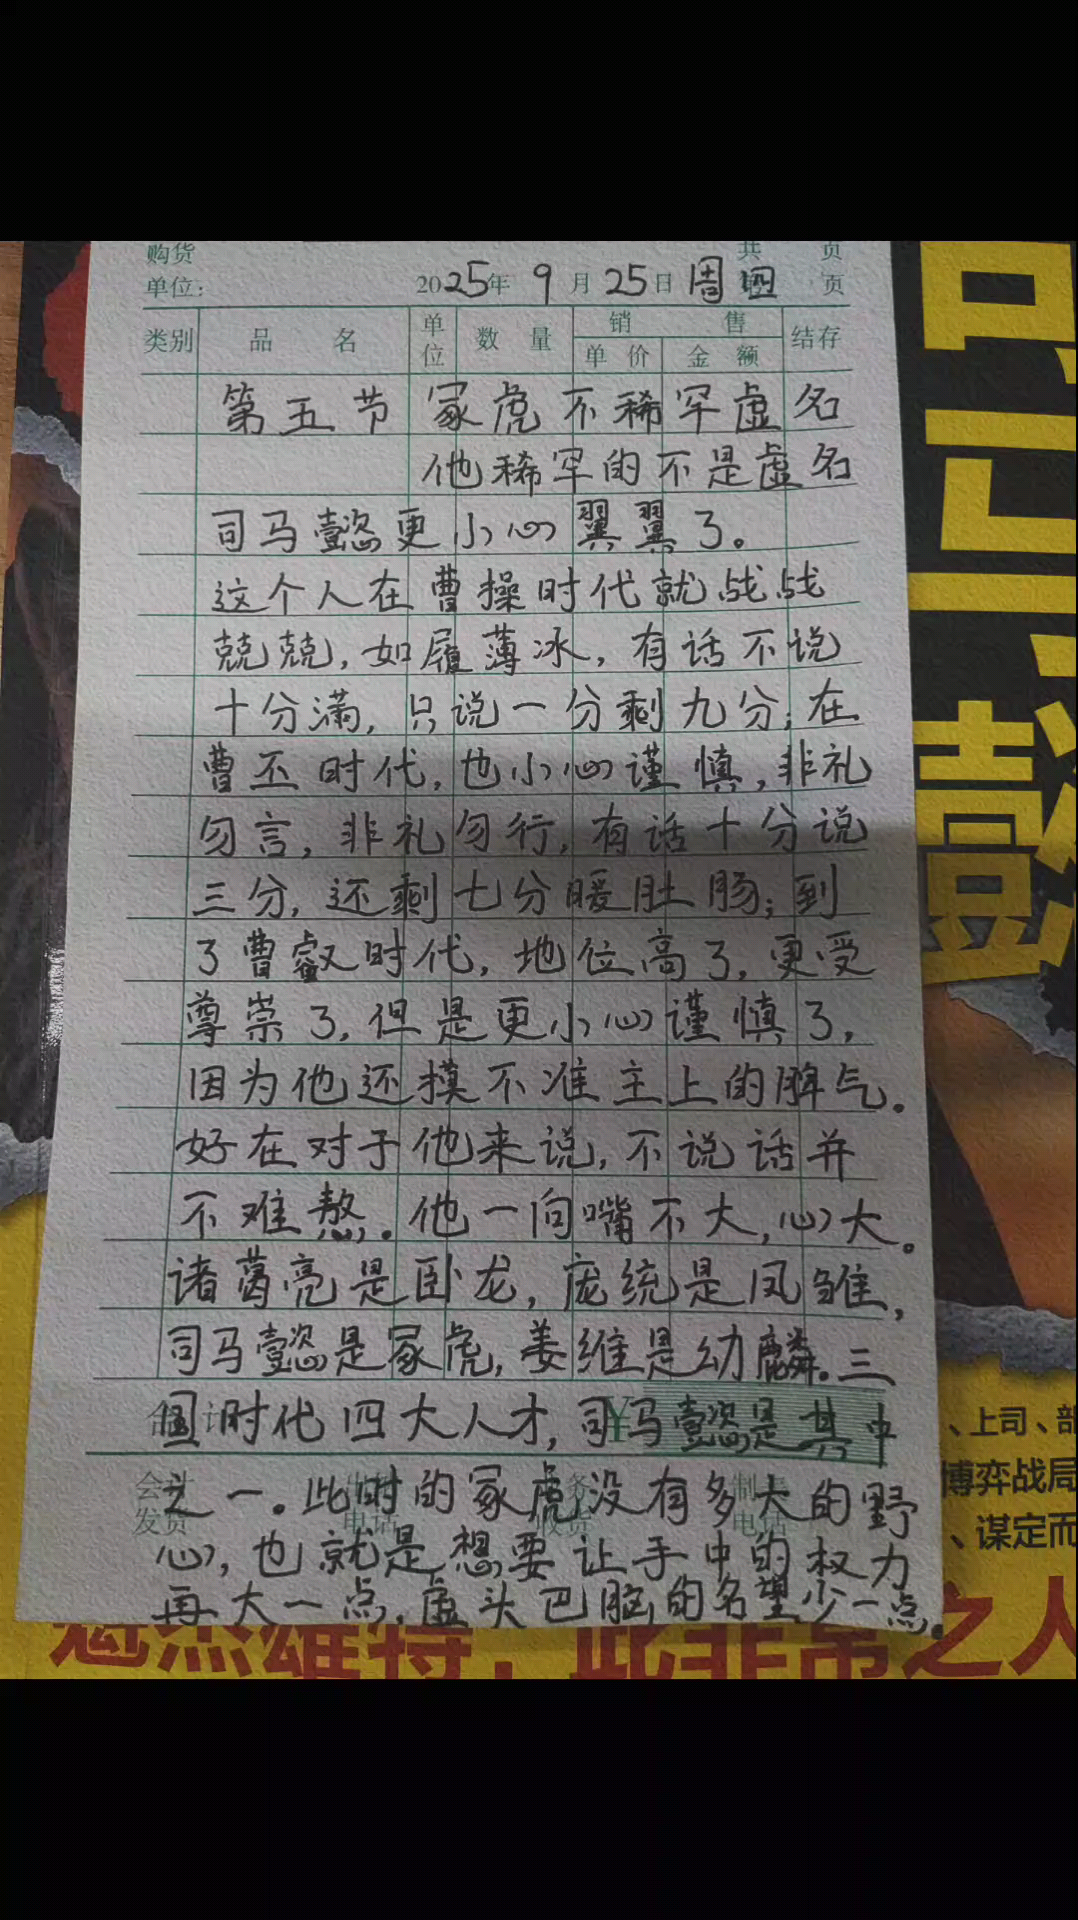 购货 共 页
单位: 2025年 9月 25日 周四 页
类别 品名 单位 数量 销售 结存
单价 金额
第五节 冢虎不稀罕虚名
他稀罕的不是虚名
司马懿更小心翼翼了。
这个人在曹操时代就战战
兢兢,如履薄冰,有话不说
十分满,只说一分剩九分;在
曹丕时代,也小心谨慎,非礼
勿言,非礼勿行,有话十分说
三分,还剩七分暖肚肠;到
了曹叡时代,地位高了,更受
尊崇了,但是更小心谨慎了,
因为他还摸不准主上的脾气。
好在对于他来说,不说话并
不难熬。他一向嘴不大,心大。
诸葛亮是卧龙,庞统是凤雏,
司马懿是冢虎,姜维是幼麟。三
国时代四大人才,司马懿是其中
之一。此时的冢虎没有多大的野
心,也就是想要让手中的权力
再大一点,虚头巴脑的名望少一点。
会计
发货 电话 收货 电话
、上司、部
博弈战局
、谋定而
魁杰雄特,此非常之人